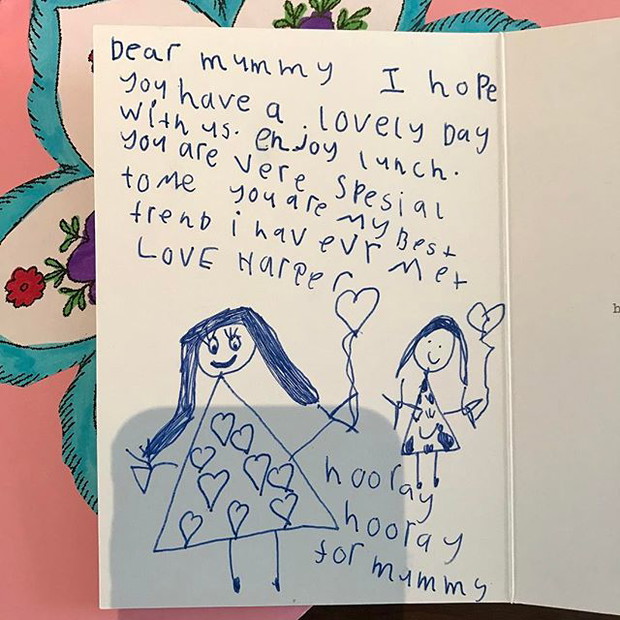 Dear mummy I hope
you have a lovely Day
with us. enjoy lunch.
you are vere spesial
to me you are my Best
frend i hav evr met
LOVE HARPER
hooray
hooray
for mummy
h